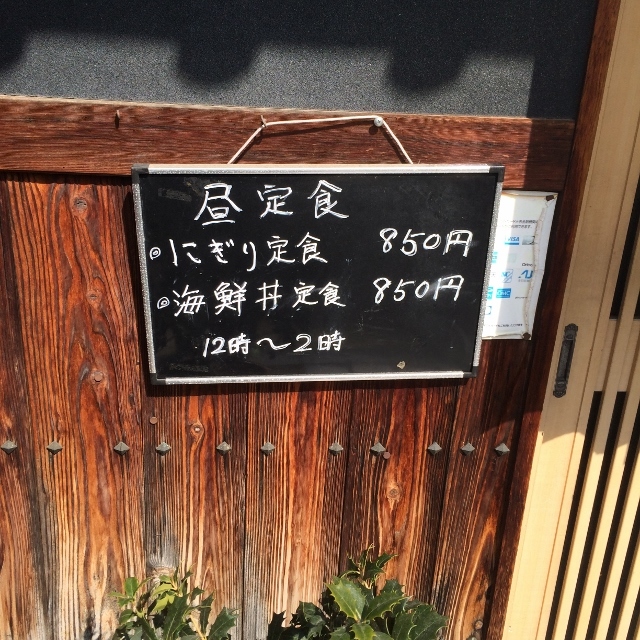 昼定食
◎にぎり定食 850円
◎海鮮丼定食 850円
12時〜2時
VISA